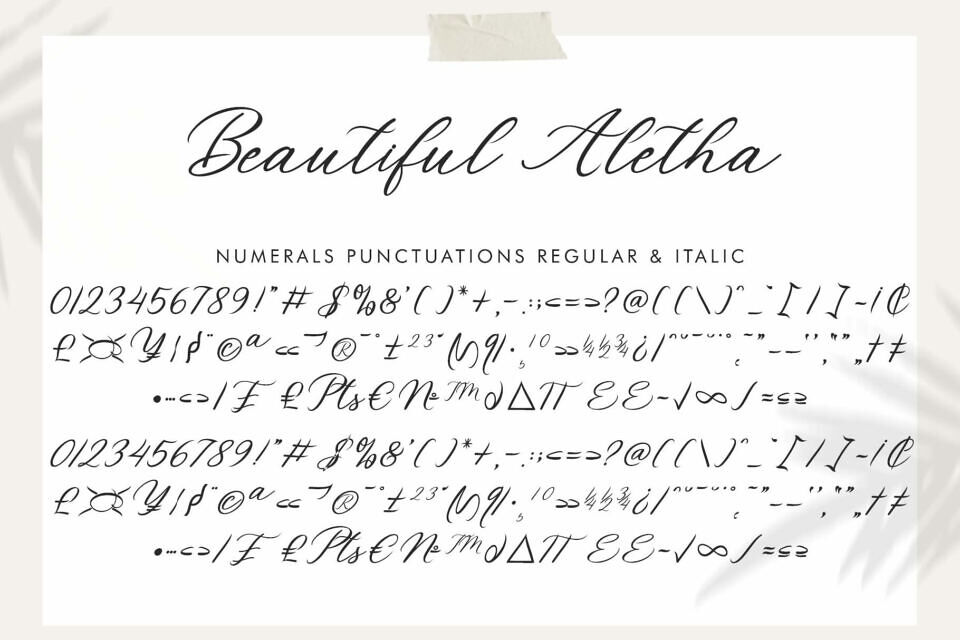 Beautiful Aletha
NUMERALS PUNCTUATIONS REGULAR & ITALIC
0123456789!"# $%&'()*+,-.:;<=>?@((\)^_`[/]~¡₡
£¤¥¦§¨©ª«¬®¯°±²³´µ¶·¸¹º»¼½¾¿/ˆ˜¯˘˙˚¸˜˝–—‘’‚“”„†‡
•…‹›/₣ ₤₧€№™∂∆∏ ƐƐ−√∞∫≈≤≥
0123456789!"# $%&'()*+,-.:;<=>?@((\)^_`[/]~¡₡
£¤¥¦§¨©ª«¬®¯°±²³´µ¶·¸¹º»¼½¾¿/ˆ˜¯˘˙˚¸˜˝–—‘’‚“”„†‡
•…‹›/₣ ₤₧€№™∂∆∏ ƐƐ−√∞∫≈≤≥